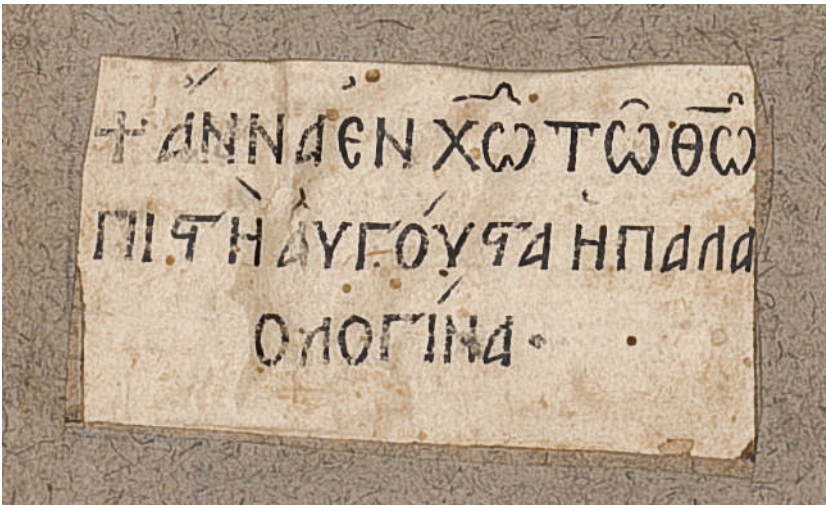 + ἄΝΝΑ ἐΝ Χω̅͂ Τῶ Θω̅͂
ΠΙϚῊ ἀΥΓΟΎϚΑ Ἡ ΠΑΛΑ
ΟΛΟΓΊΝΑ·